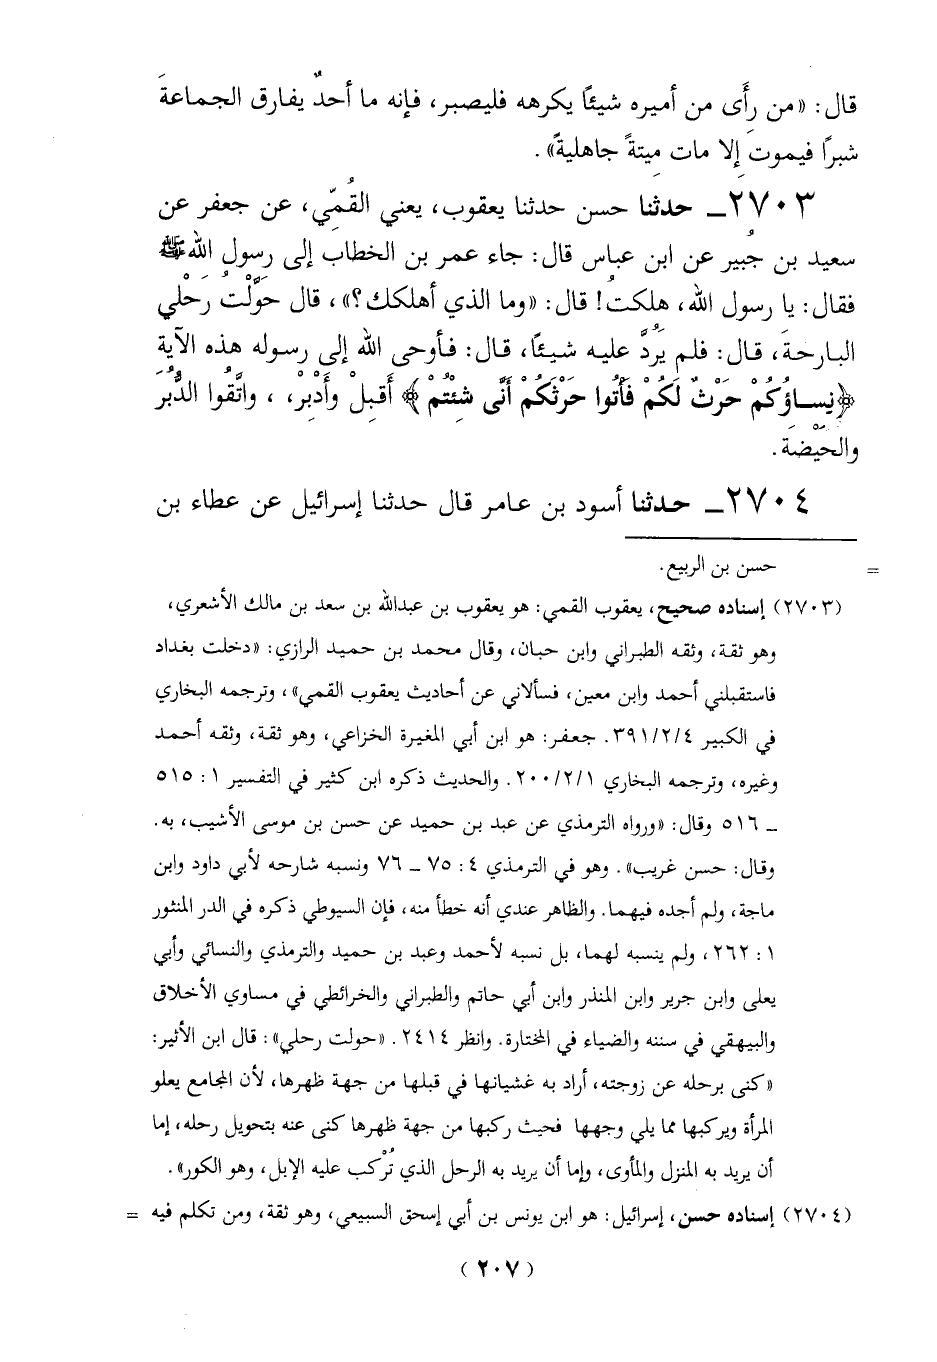 قال: «من رأَى من أميره شيئًا يكرهه فليصبر، فإنه ما أحدٌ يفارق الجماعةَ
شبرًا فيموتِ إلا مات مِيتةً جاهليةً».
٢٧٠٣ـ حدثنا حسن حدثنا يعقوب، يعني القُمّي، عن جعفر عن
سعيد بن جُبير عن ابن عباس قال: جاء عمر بن الخطاب إلى رسول الله ﷺ
فقال: يا رسول الله، هلكتُ! قال: «وما الذي أهلكك؟»، قال حَوَّلْتُ رَحْلي
البارحةَ، قال: فلم يَرُدَّ عليه شيئًا، قال: فأوحى الله إلى رسوله هذه الآية
﴿نِساؤُكُمْ حَرْثٌ لَكُمْ فَأْتُوا حَرْثَكُمْ أَنَّى شِئْتُمْ﴾ أَقبِلْ وأَدْبِرْ، ، واتَّقُوا الدُّبُرَ
والحَيْضَة.
٢٧٠٤ـ حدثنا أسود بن عامر قال حدثنا إسرائيل عن عطاء بن
= حسن بن الربيع.
(٢٧٠٣) إسناده صحيح، يعقوب القمي: هو يعقوب بن عبدالله بن سعد بن مالك الأشعري،
وهو ثقة، وثقه الطبراني وابن حبان، وقال محمد بن حميد الرازي: «دخلت بغداد
فاستقبلني أحمد وابن معين، فسألاني عن أحاديث يعقوب القمي»، وترجمه البخاري
في الكبير ٣٩١/٢/٤. جعفر: هو ابن أبي المغيرة الخزاعي، وهو ثقة، وثقه أحمد
وغيره، وترجمه البخاري ٢٠٠/٢/١. والحديث ذكره ابن كثير في التفسير ١: ٥١٥
ـ ٥١٦ وقال: «ورواه الترمذي عن عبد بن حميد عن حسن بن موسى الأشيب، به.
وقال: حسن غريب». وهو في الترمذي ٤: ٧٥ ـ ٧٦ ونسبه شارحه لأبي داود وابن
ماجة، ولم أجده فيهما. والظاهر عندي أنه خطأ منه، فإن السيوطي ذكره في الدر المنثور
١: ٢٦٢، ولم ينسبه لهما، بل نسبه لأحمد وعبد بن حميد والترمذي والنسائي وأبي
يعلى وابن جرير وابن المنذر وابن أبي حاتم والطبراني والخرائطي في مساوي الأخلاق
والبيهقي في سننه والضياء في المختارة. وانظر ٢٤١٤. «حولت رحلي»: قال ابن الأثير:
«كنى برحله عن زوجته، أراد به غشيانها في قبلها من جهة ظهرها، لأن المجامع يعلو
المرأة ويركبها مما يلي وجهها فحيث ركبها من جهة ظهرها كنى عنه بتحويل رحله، إما
أن يريد به المنزل والمأوى، وإما أن يريد به الرحل الذي تُرْكب عليه الإبل، وهو الكور».
(٢٧٠٤) إسناده حسن، إسرائيل: هو ابن يونس بن أبي إسحق السبيعي، وهو ثقة، ومن تكلم فيه =
(٢٠٧)